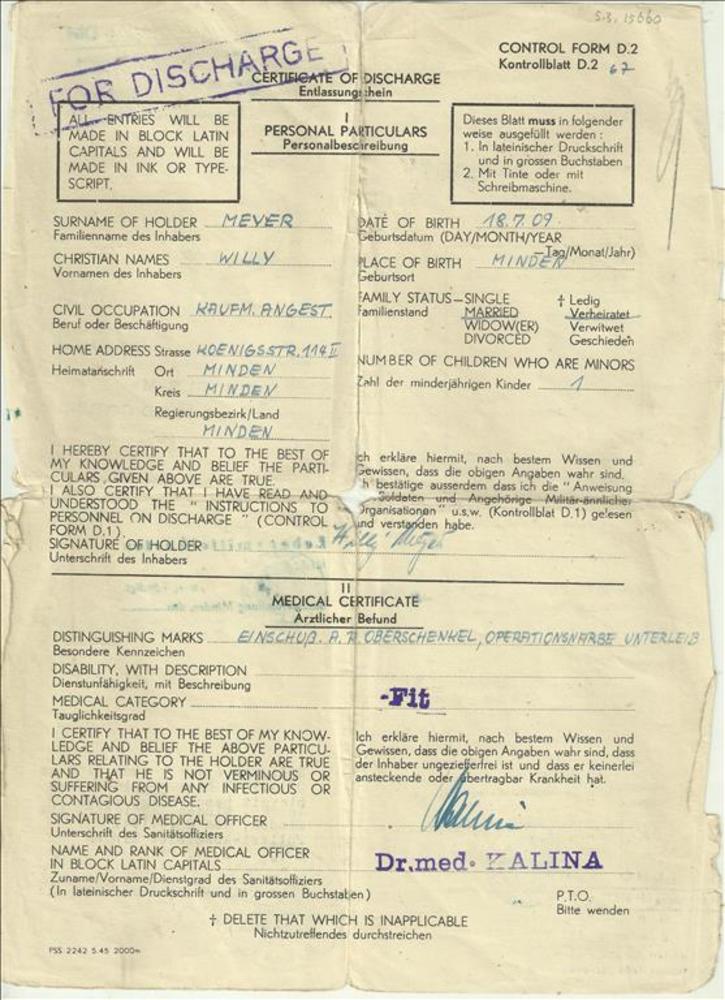 5.3. 15660
CONTROL FORM D.2
Kontrollblatt D.2 67
FOR DISCHARGE
CERTIFICATE OF DISCHARGE
Entlassungschein
ALL ENTRIES WILL BE
MADE IN BLOCK LATIN
CAPITALS AND WILL BE
MADE IN INK OR TYPE-
SCRIPT.
I
PERSONAL PARTICULARS
Personalbeschreibung
Dieses Blatt muss in folgender
weise ausgefüllt werden :
1. In lateinischer Druckschrift
und in grossen Buchstaben
2. Mit Tinte oder mit
Schreibmaschine.
SURNAME OF HOLDER MEYER
Familienname des Inhabers
CHRISTIAN NAMES WILLY
Vornamen des Inhabers
CIVIL OCCUPATION KAUFM. ANGEST.
Beruf oder Beschäftigung
HOME ADDRESS Strasse KOENIGSSTR. 114 II
Heimatanschrift Ort MINDEN
Kreis MINDEN
Regierungsbezirk/Land
MINDEN
DATE OF BIRTH 18.7.09.
Geburtsdatum (DAY/MONTH/YEAR
—Tag/Monat/Jahr)
PLACE OF BIRTH MINDEN
Geburtsort
FAMILY STATUS—SINGLE † Ledig
Familienstand MARRIED Verheiratet
WIDOW(ER) Verwitwet
DIVORCED Geschieden
NUMBER OF CHILDREN WHO ARE MINORS
Zahl der minderjährigen Kinder 1
I HEREBY CERTIFY THAT TO THE BEST OF
MY KNOWLEDGE AND BELIEF THE PARTI-
CULARS GIVEN ABOVE ARE TRUE.
I ALSO CERTIFY THAT I HAVE READ AND
UNDERSTOOD THE " INSTRUCTIONS TO
PERSONNEL ON DISCHARGE " (CONTROL
FORM D.1).
SIGNATURE OF HOLDER
Unterschrift des Inhabers
ch erkläre hiermit, nach bestem Wissen und
Gewissen, dass die obigen Angaben wahr sind.
h bestätige ausserdem dass ich die " Anweisung
Soldaten und Angehörige Militär-ännlicher
Organisationen " u.s.w. (Kontrollblat D.1) gelesen
und verstanden habe.
Willy Meyer
II
MEDICAL CERTIFICATE
Ärztlicher Befund
DISTINGUISHING MARKS EINSCHUß. A. R. OBERSCHENKEL, OPERATIONSNARBE UNTERLEIB
Besondere Kennzeichen
DISABILITY, WITH DESCRIPTION
Dienstunfähigkeit, mit Beschreibung
MEDICAL CATEGORY -Fit
Tauglichkeitsgrad
I CERTIFY THAT TO THE BEST OF MY KNOW-
LEDGE AND BELIEF THE ABOVE PARTICU-
LARS RELATING TO THE HOLDER ARE TRUE
AND THAT HE IS NOT VERMINOUS OR
SUFFERING FROM ANY INFECTIOUS OR
CONTAGIOUS DISEASE.
Ich erkläre hiermit, nach bestem Wissen und
Gewissen, dass die obigen Angaben wahr sind, dass
der Inhaber ungezieferfrei ist und dass er keinerlei
ansteckende oder übertragbar Krankheit hat.
SIGNATURE OF MEDICAL OFFICER Kalina
Unterschrift des Sanitätsoffiziers
NAME AND RANK OF MEDICAL OFFICER
IN BLOCK LATIN CAPITALS Dr.med. KALINA
Zuname/Vorname/Dienstgrad des Sanitätsoffiziers
(In lateinischer Druckschrift und in grossen Buchstaben)
P.T.O.
Bitte wenden
† DELETE THAT WHICH IS INAPPLICABLE
Nichtzutreffendes durchstreichen
PSS 2242 5.45 2000m